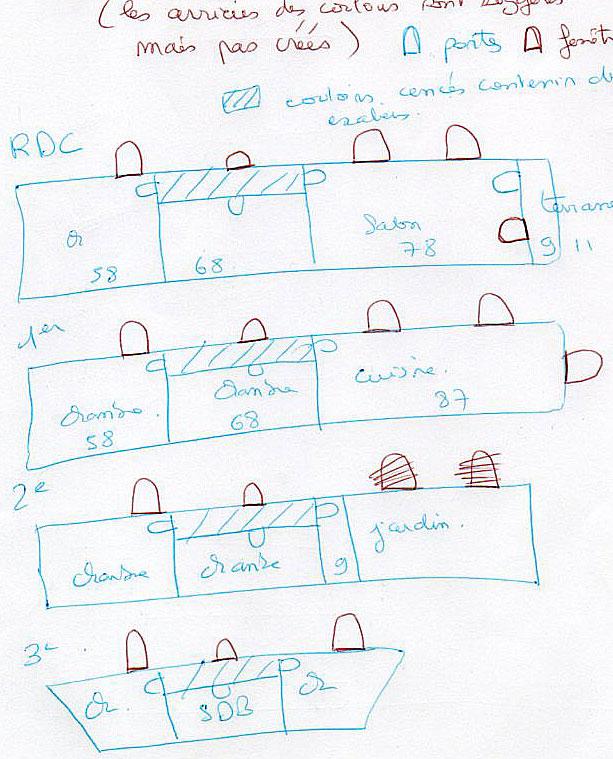 (les arrivées des couloirs sont
mais pas créés) portes
couloirs censés contenir
RDC
ch
58
68
Salon
78
9 11
1er
chambre
58
chambre
68
cuisine.
87
2e
chambre
chambre
9
jardin.
3e
ch
SDB
ch